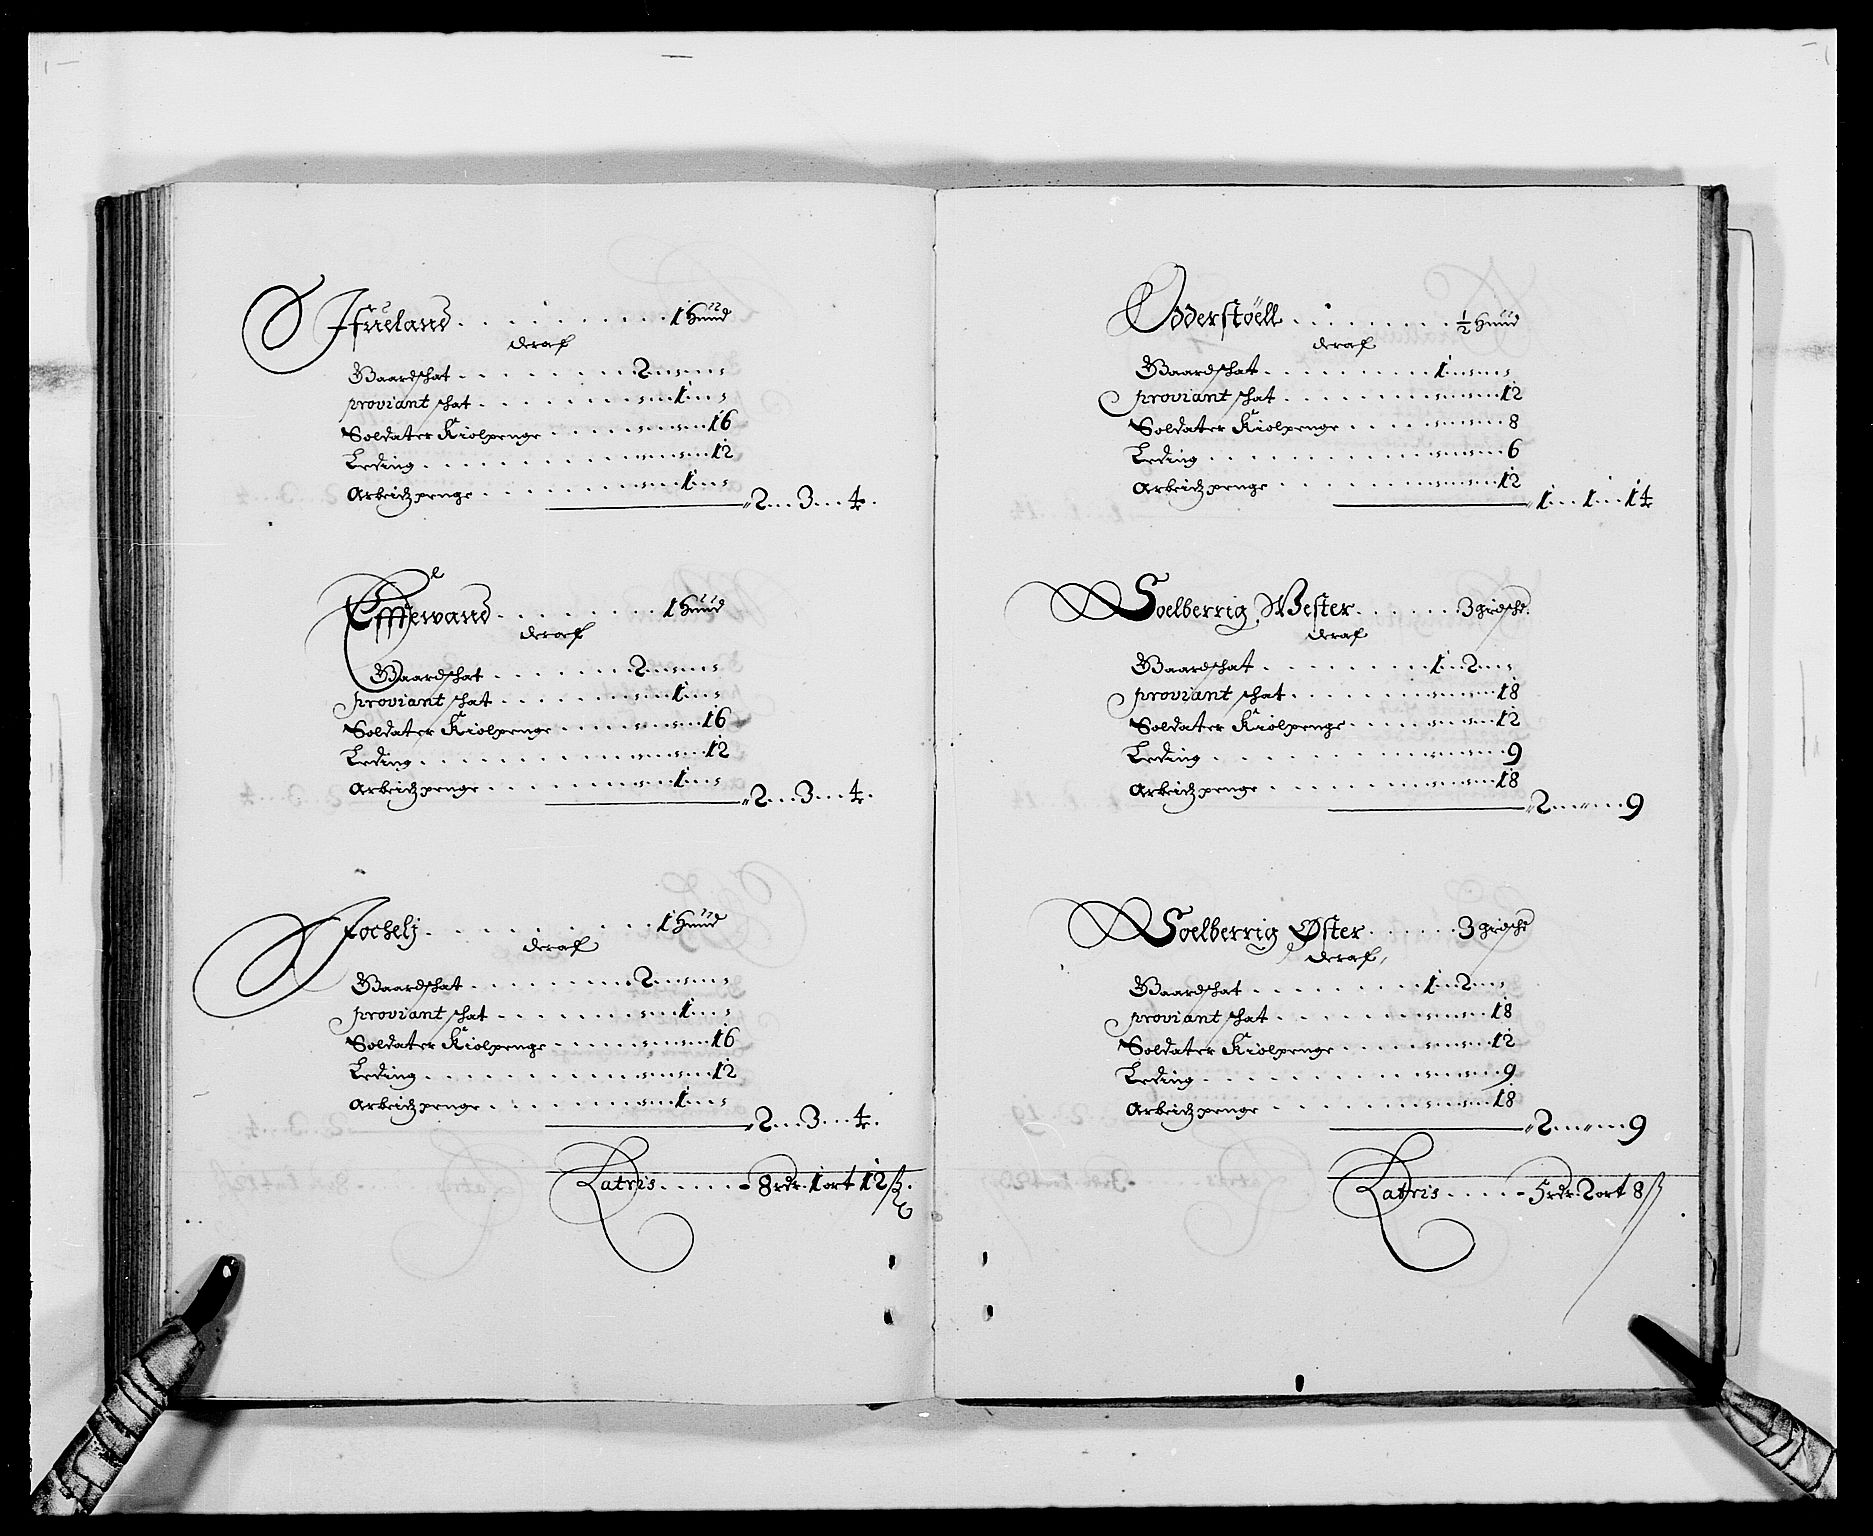 Ifrueland . . . . . . . . . 1 Huud
deraf
Gaardschat . . . . . . . . 2 „ „
proviant schat . . . . . . „ 1 „
Soldater Kiolpenge . . . . . „ „ 16
Leding . . . . . . . . . „ „ 12
Arbeidzpenge . . . . . . „ 1 „
2 . . . 3 . . . 4 .
Efftewand . . . . . . . 1 Huud
deraf
Gaardschat . . . . . . . 2 „ „
proviant schat . . . . . . „ 1 „
Soldater Kiolpenge . . . . „ „ 16
Leding . . . . . . . . . „ „ 12
Arbeidzpenge . . . . . . „ 1 „
2 . . . 3 . . . 4 .
Jochelj . . . . . . . . . 1 Huud
deraf
Gaardschat . . . . . . . . 2 „ „
proviant schat . . . . . . „ 1 „
Soldater Kiolpenge . . . . „ „ 16
Leding . . . . . . . . . „ „ 12
Arbeidzpenge . . . . . . „ 1 „
2 . . . 3 . . . 4 .
Latris . . . . . 8 rdr. 1 ort 12 ß.
Odderstöell . . . . . . . ½ Huud
deraf
Gaardschat . . . . . . . . 1 „ „
proviant schat . . . . . . „ „ 12
Soldater Kiolpenge . . . . „ „ 8
Leding . . . . . . . . . „ „ 6
Arbeidzpenge . . . . . . „ „ 12
1 . . . 1 . . . 14
Soelberrig Wester . . . . . . 3 giedsk.
deraf
Gaardschat . . . . . . . . 1 2 „
proviant schat . . . . . . „ „ 18
Soldater Kiolpenge . . . . „ „ 12
Leding . . . . . . . . . „ „ 9
Arbeidzpenge . . . . . . „ „ 18
2 . . . „ . . . 9
Soelberrig Øster . . . . . . 3 giedsk
deraf
Gaardschat . . . . . . . . 1 2 „
proviant schat . . . . . . „ „ 18
Soldater Kiolpenge . . . . „ „ 12
Leding . . . . . . . . . „ „ 9
Arbeidzpenge . . . . . . „ „ 18
2 . . . „ . . . 9
Latris . . . . . 5 rdr. 2 ort 8 ß